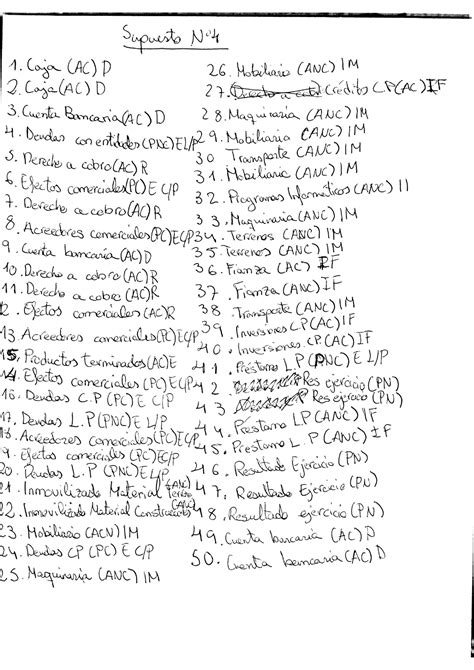 Supuesto Nº4
1. Caja (AC) D
2. Caja (AC) D
3. Cuenta Bancaria (AC) D
4. Deudas con entidades (PNC) E L/P
5. Derecho a cobro (AC) R
6. Efectos comerciales (PC) E C/P
7. Derecho a cobro (AC) R
8. Acreedores comerciales (PC) E C/P
9. Cuenta bancaria (AC) D
10. Derecho a cobro (AC) R
11. Derecho a cobro (AC) R
12. Efectos comerciales (AC) R
13. Acreedores comerciales (PC) E C/P
15. Productos terminados (AC) E
14. Efectos comerciales (PC) E C/P
16. Deudas C.P (PC) E C/P
17. Deudas L.P (PNC) E L/P
18. Acreedores comerciales (PC) E C/P
19. Efectos comerciales (PC) E C/P
20. Deudas L.P (PNC) E L/P
21. Inmovilizado Material Terreno (ANC)
22. Inmovilizado Material Construcción (ANC)
23. Mobiliario (ACN) IM
24. Deudas CP (PC) E C/P
25. Maquinaria (ANC) IM
26. Mobiliario (ANC) IM
27. Créditos C.P (AC) IF
28. Maquinaria (ANC) IM
29. Mobiliario (ANC) IM
30 Transporte (ANC) IM
31. Mobiliario (ANC) IM
32. Programas Informáticos (ANC) II
33. Maquinaria (ANC) IM
34. Terrenos (ANC) IM
35. Terrenos (ANC) IM
36. Fianza (AC) IF
37. Fianza (ANC) IF
38. Transporte (ANC) IM
39. Inversiones CP (AC) IF
40. Inversiones. CP (AC) IF
41. Préstamo L.P (PNC) E L/P
42. Res ejercicio (PN)
43 Res ejercicio (PN)
44. Prestamo LP (ANC) IF
45. Prestamo L.P (ANC) IF
46. Resultado Ejercicio (PN)
47. Resultado Ejercicio (PN)
48. Resultado ejercicio (PN)
49. Cuenta bancaria (AC) D
50. Cuenta bancaria (AC) D